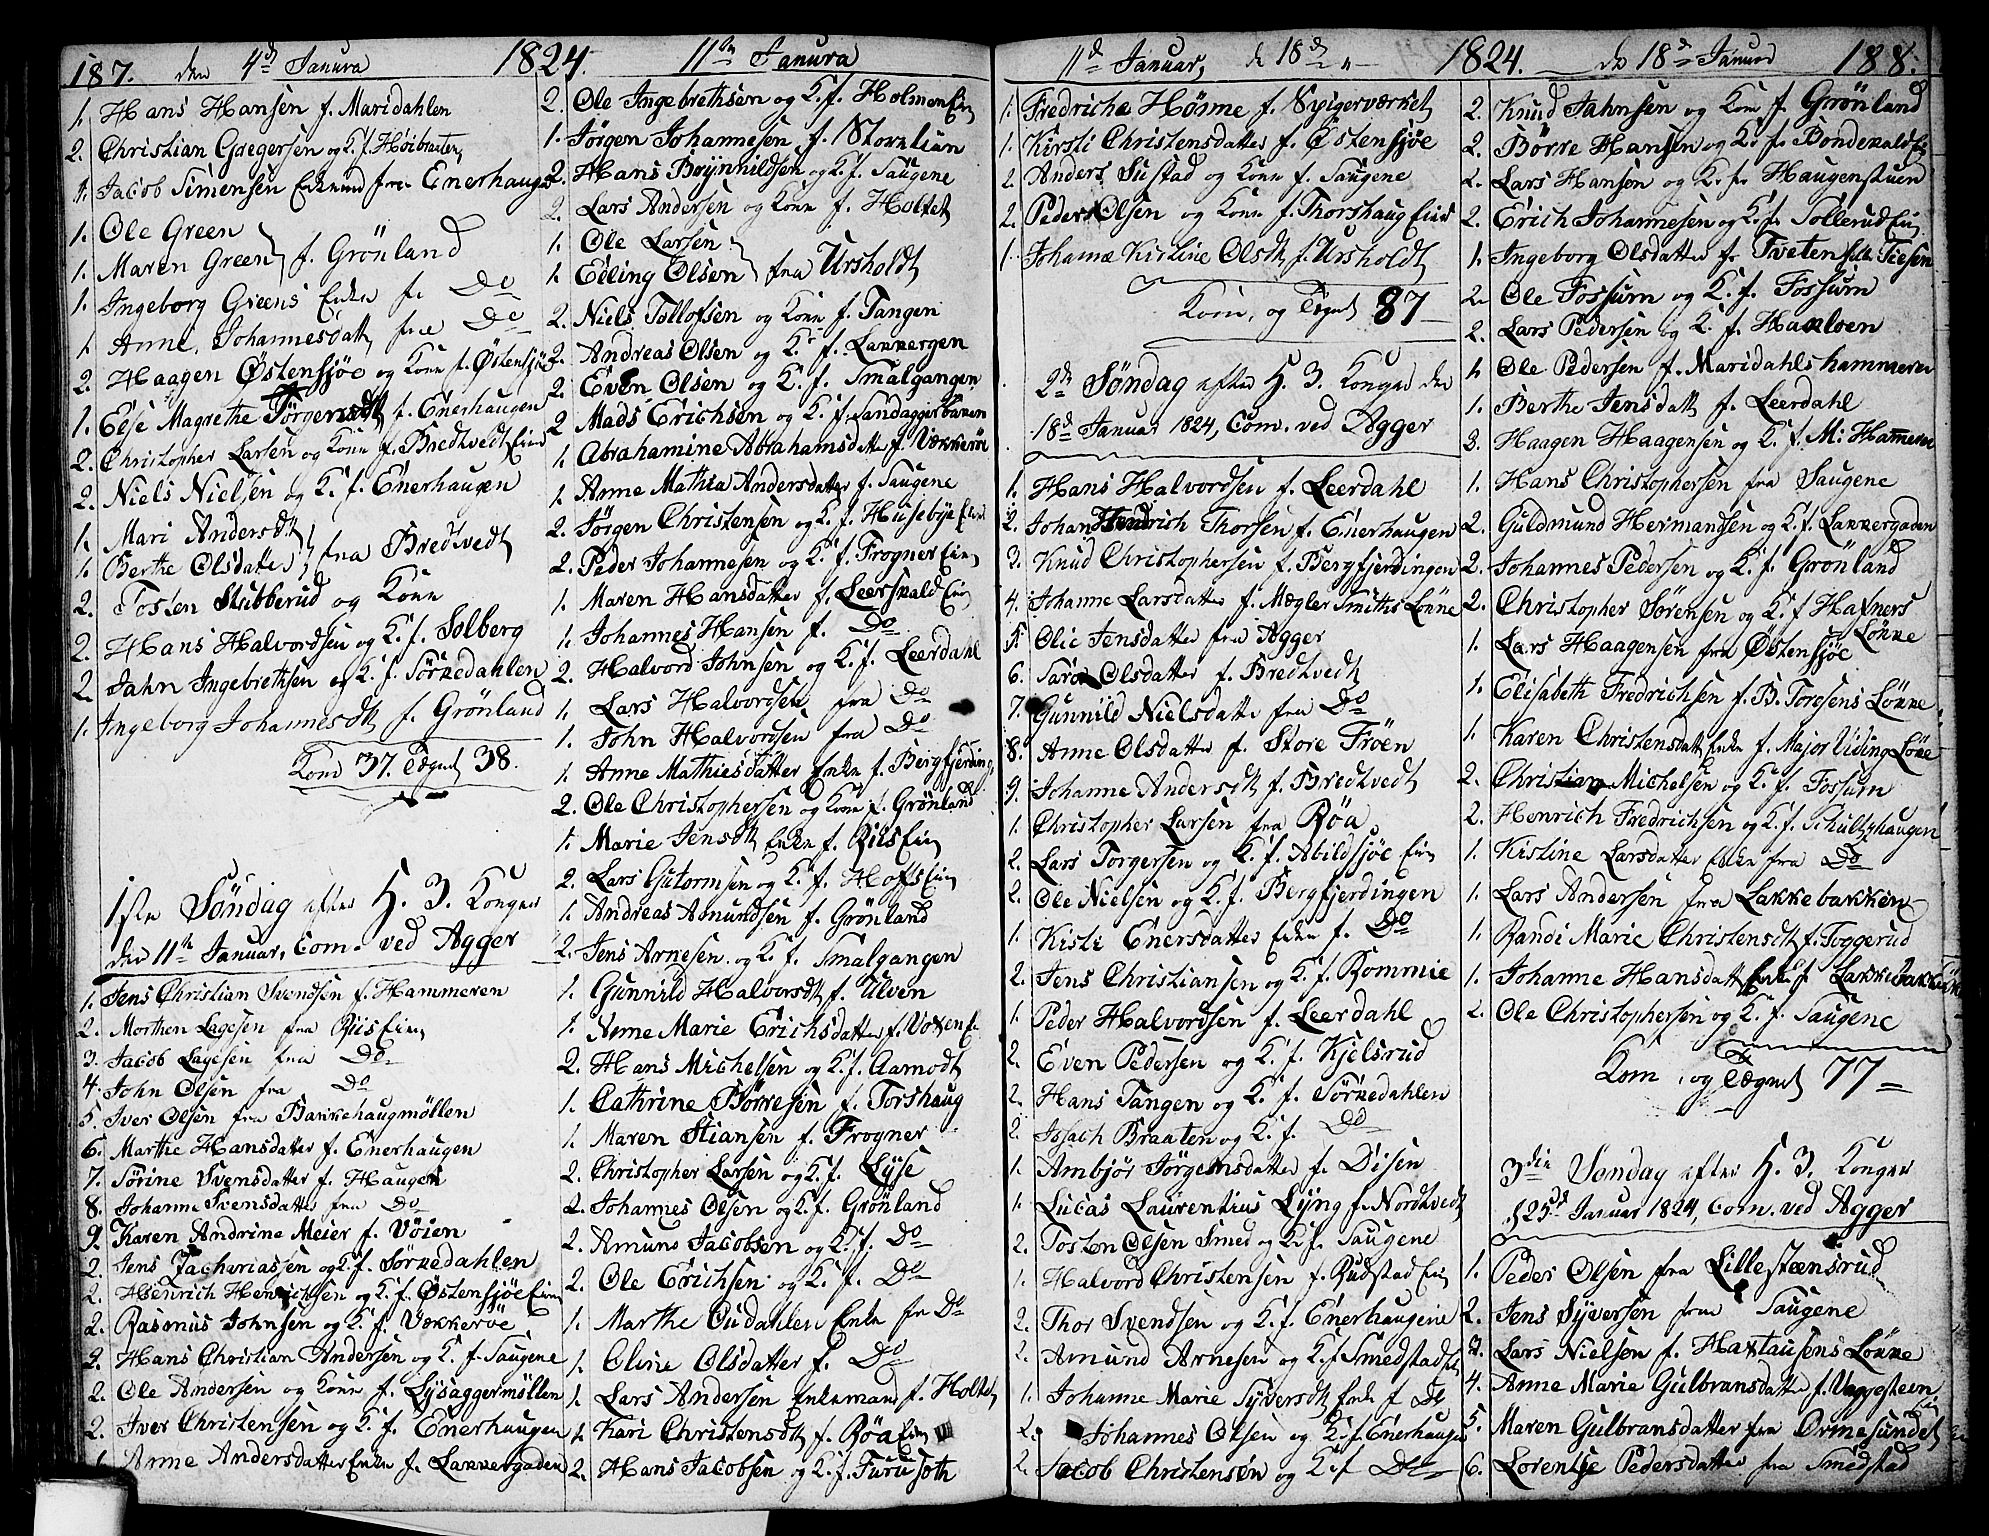 187. den 4de Janura 1824. 11te Janura
1. Hans Hansen f. Maridahlen
2. Christian Gregersen og K. f. Høibraaten
1. Jacob Simensen Enkemd fra Enerhaugen
1. Ole Green
1. Maren Green f. Grönland
1. Ingeborg Greens Enke f. Do
1. Anne Johannesdatt fra Do
2. Haagen Østensjøe og Kone f. Østensjøe
1. Else Magrethe Jörgensdt f. Enerhaugen
2. Christopher Larsen og Kone f. Bredtvedt Eier
2. Niels Nielsen og K. f. Enerhaugen
1. Mari Andersdt
1. Berthe Olsdatter fra Bredtvedt
2. Tosten Stubberud og Kone
2. Hans Halvordsen og K. f. Solberg
2. Jahn Ingebrethsen og K. f. Sörkedahlen
1. Ingeborg Johannesdt f. Grönland
Kom 37. Tegnet 38.
1ste Søndag efter H. 3. Konger
den 11te Januar, Com. ved Agger
1. Jens Christian Svendsen f. Hammeren
2. Morthen Lagesen fra Riis Eie
3. Jacob Lagesen fra Do
4. John Olsen fra Do
5. Iver Olsen fra Bakkehaugmøllen
6. Marthe Hansdatter f. Enerhaugen
7. Sörine Svensdatter f. Haugen
8. Johanne Svensdatter fra Do
9. Karen Andrine Meier f. Vøien
2. Jens Zachariassen og K. f. Sørkedahlen
2. Henrich Henrichsen og K. f. Østensjøe Eie
2. Rasmus Johnsen og K. f. Vækkerøe
2. Hans Christian Andersen og K. f. Saugene
2. Ole Andersen og Kone f. Lysaggermøllen
2. Iver Christensen og K. f. Enerhaugen
1. Anne Andersdatter Enke f. Lakkergaden
2. Ole Ingebrethsen og K. f. Holmen Eie
1. Jørgen Johannesen f. Stornlien
2. Hans Brynnildsen og K. f. Saugene
2. Lars Andersen og Kone f. Holtet
1. Ole Larsen
1. Edling Olsen fra Ursholdt
2. Niels Tollofsen og Kone f. Tangen
2. Andreas Olsen og K. f. Lakkergen
2. Even Olsen og K. f. Smalgangen
2. Mads Erichsen og K. f. Sandaggerbakken
1. Abrahamine Abrahamsdatter f. Vækkerøe
1. Anne Mathea Andersdatter f. Saugene
2. Jörgen Christensen og K. f. Husebye Eie
2. Peder Johannesen og K. f. Frogner Eie
1. Maren Hansdatter f. Leerskald Eie
1. Johannes Hansen f. Do
2. Halvord Johnsen og K. f. Leerdahl
1. Lars Halvordsen fra Do
1. John Halvordsen fra Do
1. Anne Mathiesdatter Enke f. Bergfjerding
2. Ole Christophersen og Kone f. Grönland
1. Marie Jensdt Enke f. Riis Eie
2. Lars Gutormsen og K. f. Hoffs Eie
1. Andreas Asmundsen f. Grönland
2. Jens Arnesen og K. f. Smalgangen
1. Gunnild Halvorsdt f. Ulven
1. Anne Marie Erichsdatter f. Voxen E.
2. Hans Michelsen og K. f. Aamodt
1. Cathrine Börresen f. Torshaug
1. Maren Stiansen f. Frogner
2. Christopher Larsen og K. f. Lyse
2. Johannes Olsen og K. f. Grönland
2. Amund Jacobsen og K. f. Do
2. Ole Erichsen og K. f. Do
1. Marthe Gudahlen Enke fra Do
1. Oline Olsdatter f. Do
1. Lars Andersen Enkemand f. Holtet
1. Kari Christensdt f. Røa Eie
2. Hans Jacobsen og K. f. Furuseth
11d Januar, d 18de " 1824. do 18de Januar 188.
1. Fredricha Hösme f. Spigerværket
1. Kirsti Christensdatter f. Østensjøe
2. Anders Sustad og Kone f. Saugene
2. Peder Olsen og Kone f. Thorshaug Eier
1. Johanne Kirstine Olsdt f. Ursholdt
Kom, og Tegnet 87
2de Søndag efter H. 3. Konger den
18de Januar 1824, Com. ved Agger
1. Hans Halvordsen f. Leerdahl
2. Johan Hendrich Thorsen f. Enerhaugen
3. Knud Christophersen f. Bergfjerdingen
4. Johanne Larsdatter f. Mægler Smiths Løkke
5. Olie Jensdatter fra Agger
6. Sara Olsdatter f. Bredtvedt
7. Gunnild Nielsdatter fra Do
8. Anne Olsdatter f. Store Fröen
9. Johanne Andersdt f. Bredtvedt
1. Christopher Larsen fra Røa
2. Lars Torgersen og K. f. Abildsjøe Eie
2. Ole Nielsen og K. f. Bergfjerdingen
1. Kisti Enersdatter Enke f. Do
2. Jens Christiansen og K. f. Rommie
1. Peder Halvordsen f. Leerdahl
2. Even Pedersen og K. f. Kjelsrud
2. Hans Tangen og K. f. Sörkedahlen
2. Issach Braaten og K. f. Do
1. Ambjör Jörgensdatter f. Disen
1. Lucas Laurentius Lyng f. Nordtvedt
2. Tosten Olsen Smed og K. f. Saugene
1. Halvord Christensen f. Rudstad Eie
2. Thor Svendsen og K. f. Enerhaugene
2. Amund Arnesen og K. f. Smedstad
1. Johanne Marie Syversdt Enke f. Do
2. Johannes Olsen og K. f. Enerhaugen
2. Jacob Christensen og K. f. Do
2. Knud Jahnsen og Kone f. Grönland
2. Börre Hansen og K. f. Bondekald Eie
2. Lars Hansen og K. f. Haugenstuen
2. Erich Johannesen og K. f. Tollerud Eie
1. Ingeborg Olsdatter fr. Tveten
2. Ole Fossum og K. f. Fossum
2. Lars Pedersen og K. f. Haxloen
1. Ole Pedersen f. Maridahlshammeren
1. Berthe Jensdatt f. Leerdahl
3. Haagen Haagensen og K. f. M: Hammeren
1. Hans Christophersen fra Saugene
2. Guldmund Hermandsen og K. f. Lakkergaden
2. Johannes Pedersen og K. f. Grönland
2. Christopher Sörensen og K. f. Hafners Løkke
1. Lars Haagensen fra Østensjøe
1. Elisabeth Fredrichsen f. B. Torgsens Lökke
1. Karen Christensdatt Enke f. Major Uding Løkke
2. Christian Michelsen og K. f. Fossum
2. Henrich Fredrichsen og K. f. Schultzhaugen
1. Kirstine Larsdatter Enke fra Do
1. Lars Andersen fra Lakkebakken
1. Randi Marie Christensdt f. Toggerud
1. Johanne Hansdatter Enke f. Lakkebakken
2. Ole Christophersen og K. f. Saugene
Kom, og Tegnet 77
3die Søndag efter H. 3. Konger
d 25de Januar 1824, Com. ved Agger
1. Peder Olsen fra Lillesteensrud
2. Jens Syversen fra Saugene
3. Lars Nielsen f. Haxtausens Løkke
4. Anne Marie Gulbransdatter f. Vaggesteen Eie
5. Maren Gulbransdatter fra Ormesundet
6. Lorentse Pedersdatter fra Smedstad